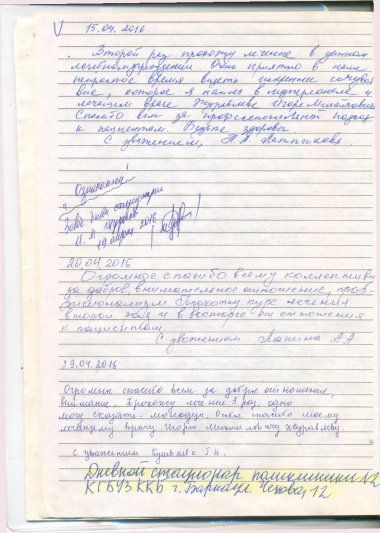 V 15.04.2016
Второй раз прохожу лечение в данном
лечебном учреждении. Очень приятно в наше
непростое время видеть искреннее сочувст
вие, которое я нашла в мед персонале и
лечащем враче Журавлеве Игоре Михайловиче
Спасибо вам за профессиональный подход
к пациентам. Будьте здоровы
С уважением,
"Ознакомлен"
Зав. дневн стационаром
И. М. Журавлев
19 апреля 2016
20.04.2016
Огромное спасибо всему коллективу
за доброе внимательное отношение, проф
фисионализм. Прохожу курс лечения
второй раз и в восторге от отношения
к пациентам
С уважением Лапина А А
29.04.2016
Огромное спасибо всем за доброе отношение,
внимание. Прохожу лечение 3 раз, одно
могу сказать - молодцы. Очень спасибо моему
лечащему врачу Игорю Михайловичу Журавлеву.
с уважением
Дневной стационар поликлиники №2
КГБУЗ ККБ г. Барнаул Чехова, 12